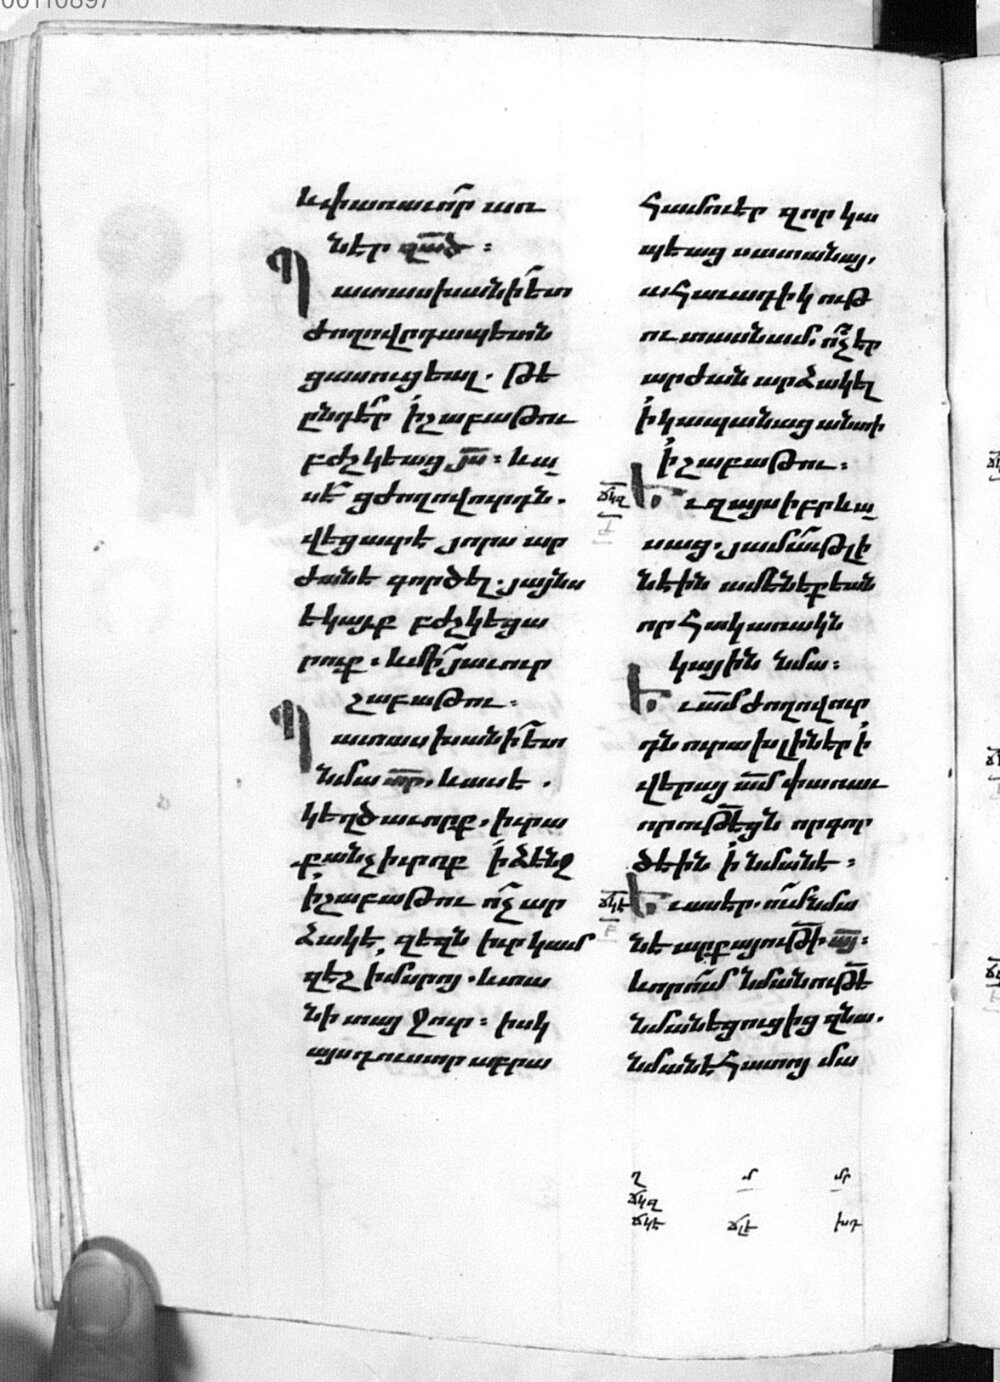 00110897
և փառաւո՜ր առ
նէր զա՜ծ ։
Պատասխանի՜ ետ
ժողովրդապետն
ցասուցեալ . թէ
ընդէ՜ր ի՛շաբաթու
բժշկեաց յս ։ և ա
սէ՜ ցժողովուրդն .
վեց աւր է յորս ար
ժան է գործել . յայնս
եկայք բժշկեցա
րուք ։ և մի՜ յաւուր
շաբաթու ։
Պատասխանի՜ ետ
նմա տր , և ասէ .
կեղծաւորք , իւրա
քանչիւրոք ի՛ ձէնջ
ի՛շաբաթու ո՜չ ար
ձակէ , զեզն իւր կամ
զէշ ի մսրոյ . և տա
նի տայ ջուր ։ իսկ
այս դուստր աբրա
համու էր զոր կա
պեաց սատանայ .
ահաւադիկ ութ
ու տասն ամ . ո՜չ էր
արժան արձակել
ի՛ կապանաց անտի
ի՛ շաբաթու ։
ճկզ
Եւ զայս իբրև ա
սաց . յամա՜ւթ լի
նէին ամենեքեան
որ հակառակն
կային նմա ։
Եւ ամ ժողովուր
դն ուրախ լինէր ի՛
վերայ ամ փառաւ
որութեցն որ գոր
ծէին ի՛ նմանէ ։
ճկէ
Եւ ասէր . ո՜ւմ նմա
նէ արքայութի այ ։
և որո՜ւմ նմանութե
նմանեցուցից զնա .
նման է հատոյ մա
ղ մ մր
ճկզ
ճկէ ճլէ խդ